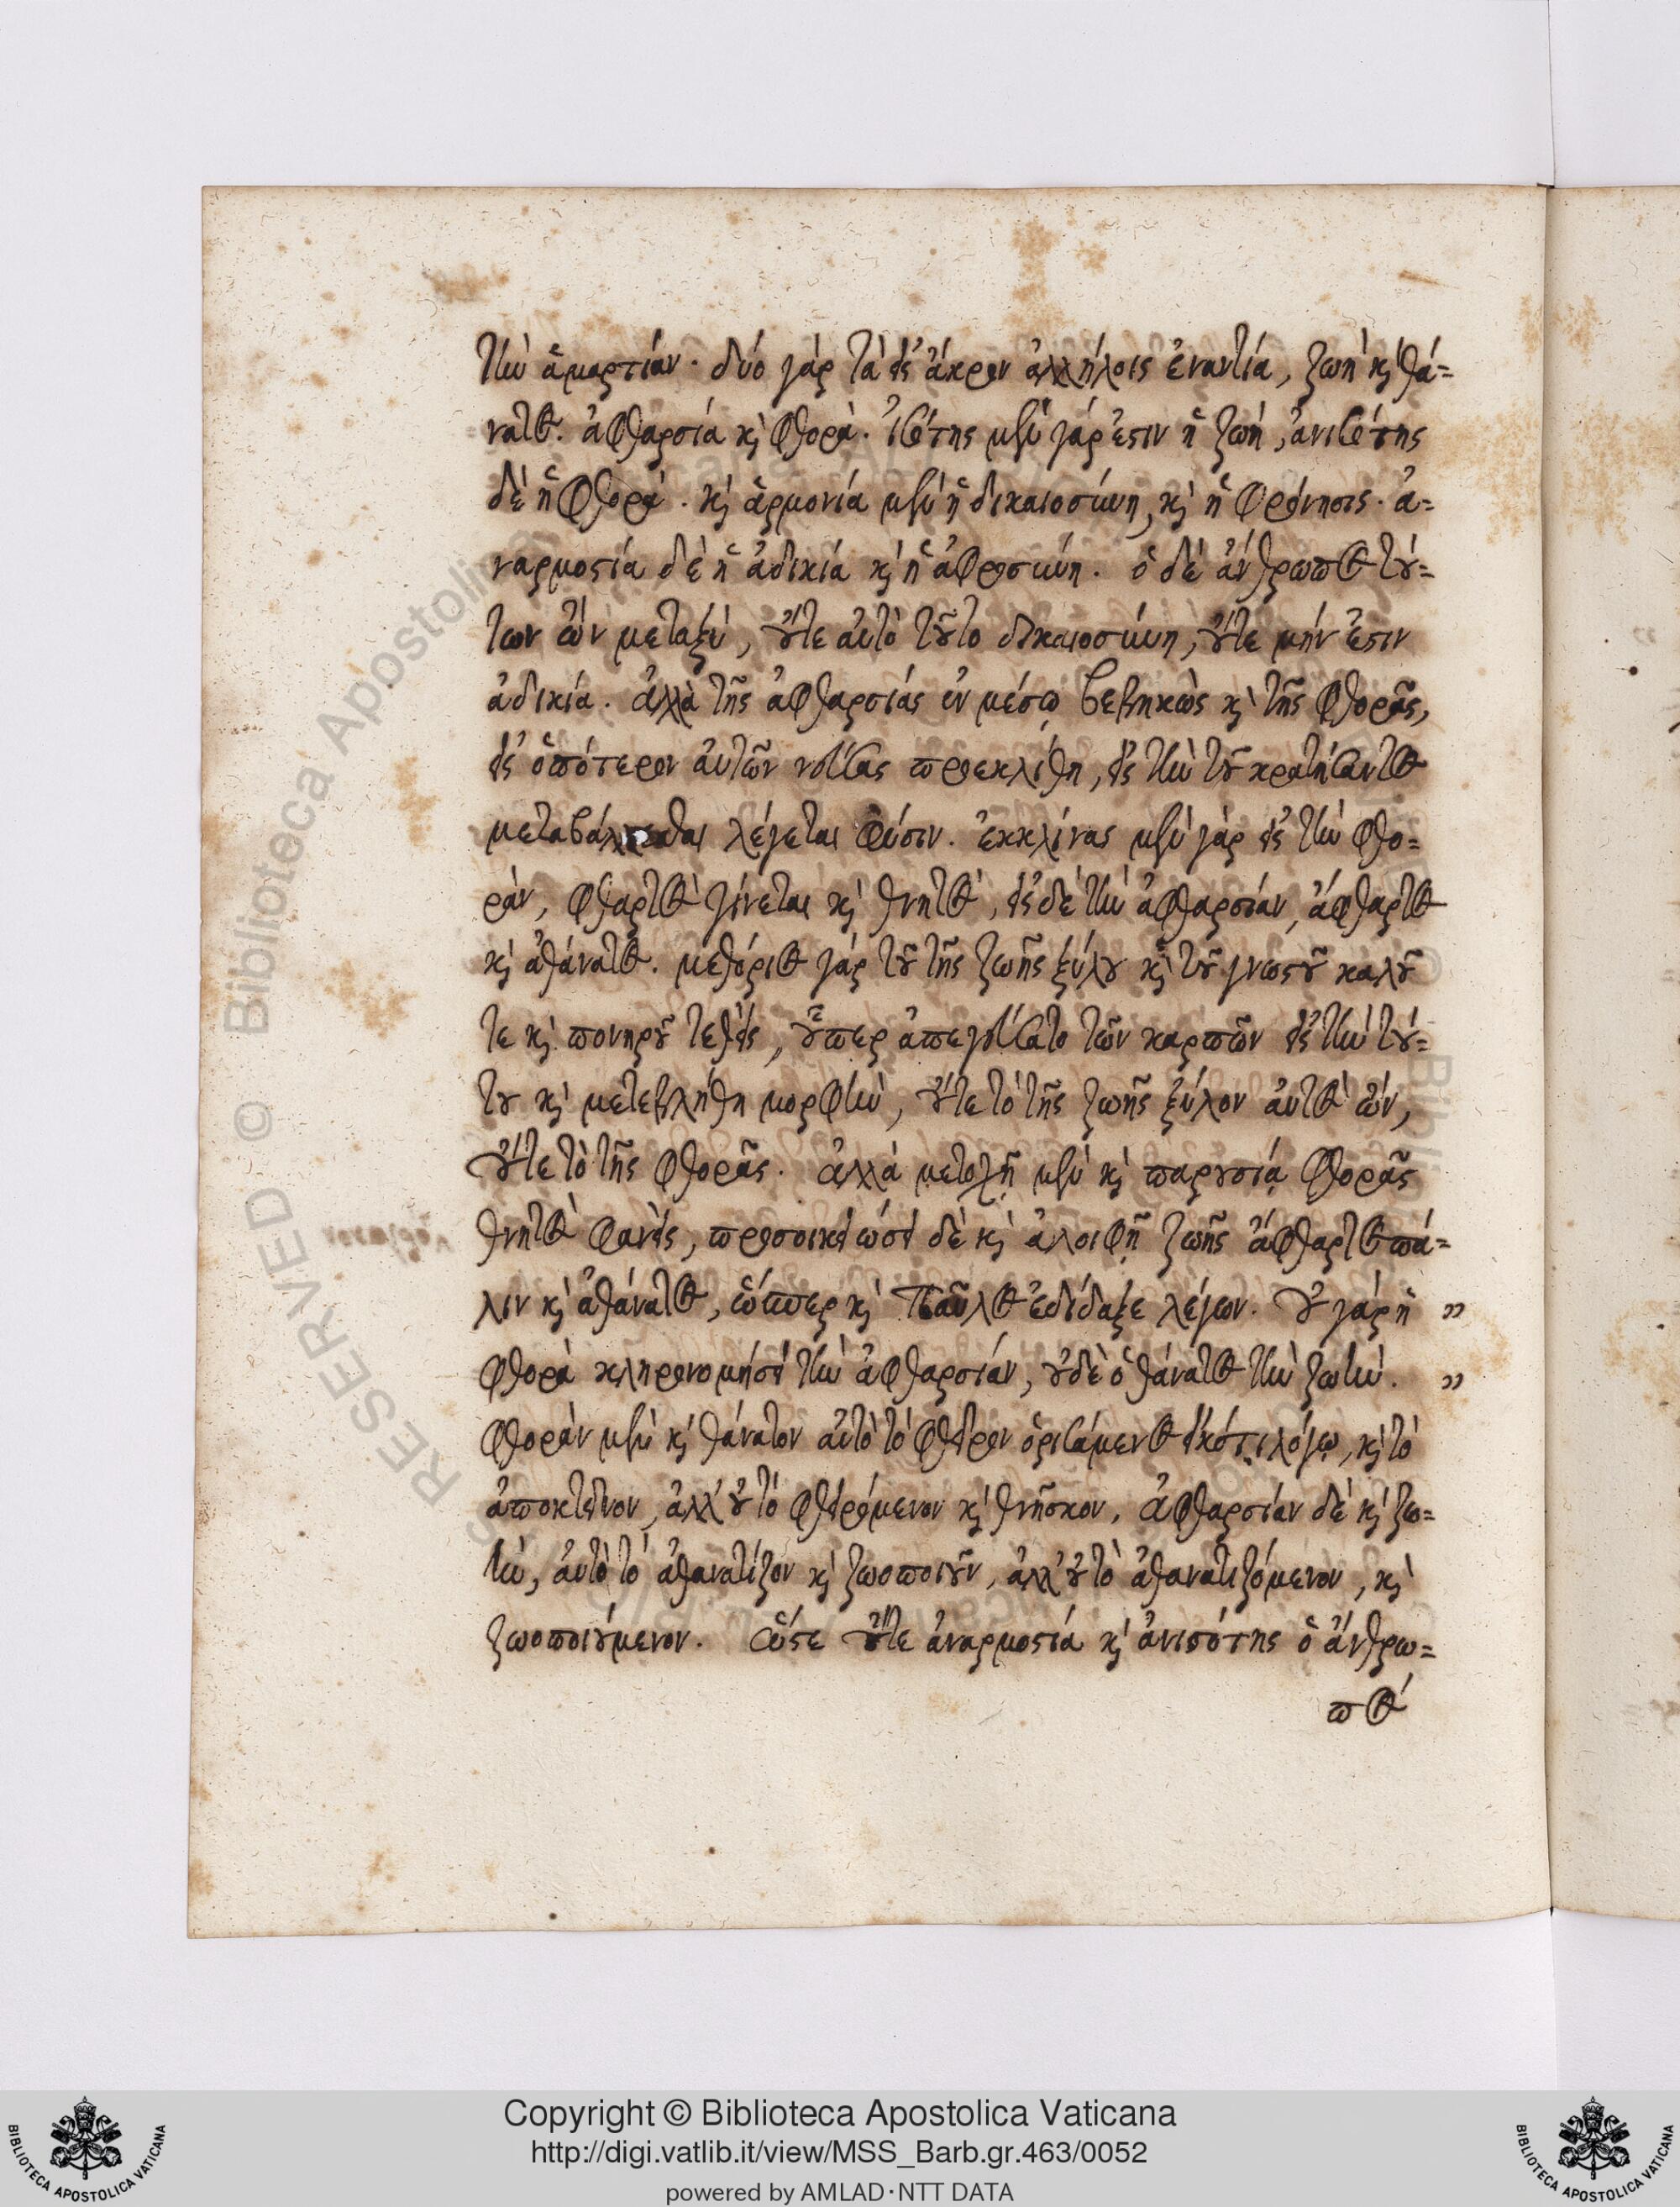 τὴν ἁμαρτίαν. δύο γὰρ τὰ εἰς ἄκρον ἀλλήλοις ἐναντία, ζωὴ κὶ θά=
νατος. ἀφθαρσία κὶ φθορά. ἰσότης μὲν γάρ ἐστιν ἡ ζωή, ἀνισότης
δὲ ἡ φθορά. κὶ ἁρμονία μὲν ἡ δικαιοσύνη, κὶ ἡ φρόνησις. ἀ=
ναρμοστία δὲ ἡ ἀδικία κὶ ἡ ἀφροσύνη. ὁ δὲ ἄνθρωπος τού=
των ὢν μεταξὺ, οὔτε αὐτὸ τοῦτο δικαιοσύνη, οὔτε μήν ἐστιν
ἀδικία. ἀλλὰ τῆς ἀφθαρσίας ἐν μέσῳ βεβηκὼς κὶ τῆς φθορᾶς,
εἰς ὁπότερον αὐτῶν νεύσας προεκλίθη, εἰς τὴν τοῦ κρατήσαντος
μεταβάλλεσθαι λέγεται φύσιν. ἐκκλίνας μὲν γὰρ εἰς τὴν φθο=
ρὰν, φθαρτὸς γίνεται κὶ θνητὸς, εἰς δὲ τὴν ἀφθαρσίαν, ἄφθαρτος
κὶ ἀθάνατος. μεθόριος γὰρ τοῦ τῆς ζωῆς ξύλου κὶ τοῦ γνωστοῦ καλοῦ
τε κὶ πονηροῦ τεθεὶς, οὗπερ ἀπεγεύσατο τῶν καρπῶν εἰς τὴν τού=
του κὶ μετεβλήθη μορφὴν, οὔτε τὸ τῆς ζωῆς ξύλον αὐτὸς ὢν,
οὔτε τὸ τῆς φθορᾶς. ἀλλὰ μετοχῇ μὲν κὶ παρουσίᾳ φθορᾶς
θνητὸς φανεὶς, προσοικειώσει δὲ κὶ ἀλοιφῇ ζωῆς ἄφθαρτος πά=
λιν κὶ ἀθάνατος, ὥσπερ κὶ Παῦλος ἐδίδαξε λέγων. Οὐ γὰρ ἡ »
φθορὰ κληρονομήσει τὴν ἀφθαρσίαν, οὐδὲ ὁ θάνατος τὴν ζωήν. »
φθορὰν μὲν κὶ θάνατον αὐτὸ τὸ φθεῖρον ὁρισάμενος εἰκότι λόγῳ, κὶ τὸ
ἀποκτεῖνον, ἀλλ' οὐ τὸ φθειρόμενον κὶ θνῆσκον. ἀφθαρσίαν δὲ κὶ ζω=
ὴν, αὐτὸ τὸ ἀθανατίζον κὶ ζωοποιοῦν, ἀλλ' οὐ τὸ ἀθανατιζόμενον, κὶ
ζωοποιούμενον. ὥστε οὔτε ἀναρμοστία κὶ ἀνισότης ὁ ἄνθρω=
πος
Copyright © Biblioteca Apostolica Vaticana
http://digi.vatlib.it/view/MSS_Barb.gr.463/0052
powered by AMLAD·NTT DATA